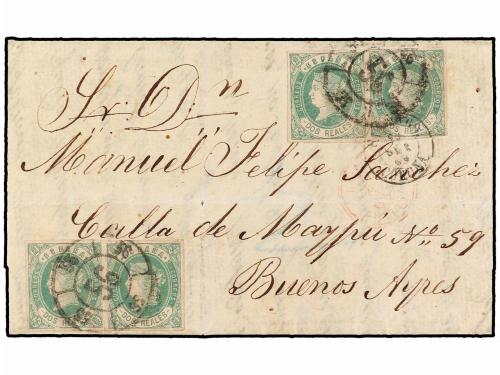 CORREOS DOS REALES
CORREOS DOS REALES
Sr. Dn
Manuel Felipe Sanchez
Calla de Maypú No. 59
Buenos Ayres
CORREOS DOS REALES
CORREOS DOS REALES